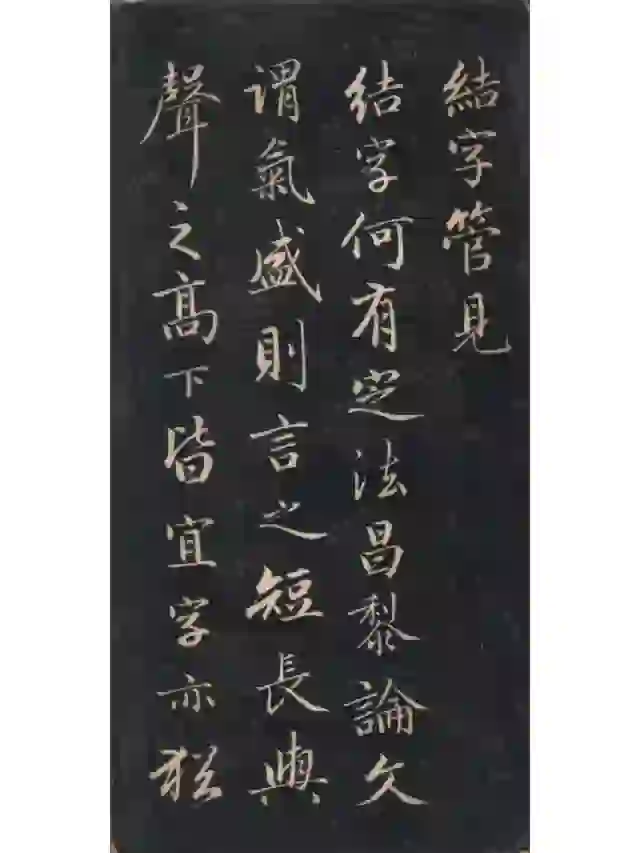 結字管見
結字何有定法昌黎論文
謂氣盛則言之短長與
聲之高下皆宜字亦猶